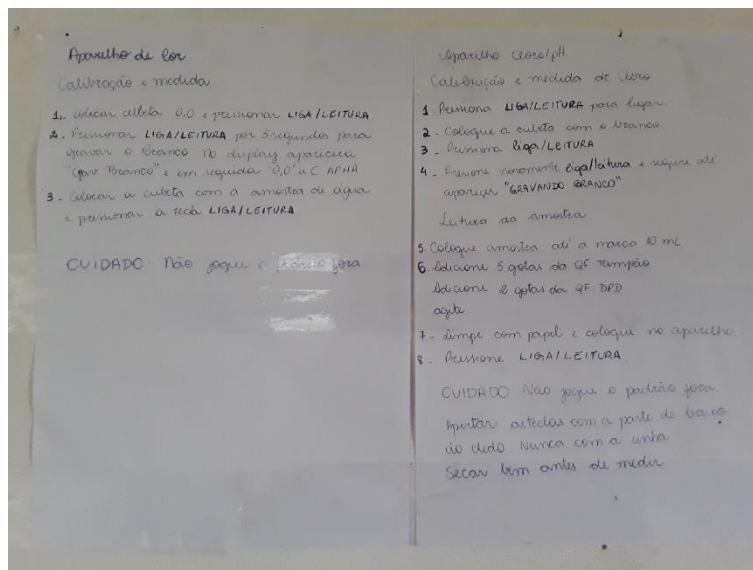 Aparelho de Cor
Calibração e medida
1. Colocar cubeta 0,0 e pressionar LIGA/LEITURA
2 - Pressionar LIGA/LEITURA por 5 segundos para
gravar o Branco no display aparecera
"Grav Branco" e em seguida "0,0" u C APHA
3 - Colocar a cubeta com a amostra de água
e pressionar a tecla LIGA/LEITURA
CUIDADO Não jogue o padrão fora
Aparelho Cloro/pH
Calibração e medida de Cloro
1 Pressiona LIGA/LEITURA para ligar
2 - Coloque a cubeta com o branco
3 - Pressiona liga/LEITURA
4 - Pressione novamente liga/leitura e segure até
apareçer "GRAVANDO BRANCO"
Leitura da amostra
5. Coloque amostra até a marca 10 mL
6. Adicione 5 gotas da QF Tampão
Adicione 2 gotas da QF DPD
agite
7 - Limpe com papel e coloque no aparelho.
8. Pressione LIGA/LEITURA
CUIDADO Não jogue o padrão fora
Apertar as teclas com a parte de baixo
do dedo Nunca com a unha
Secar bem antes de medir